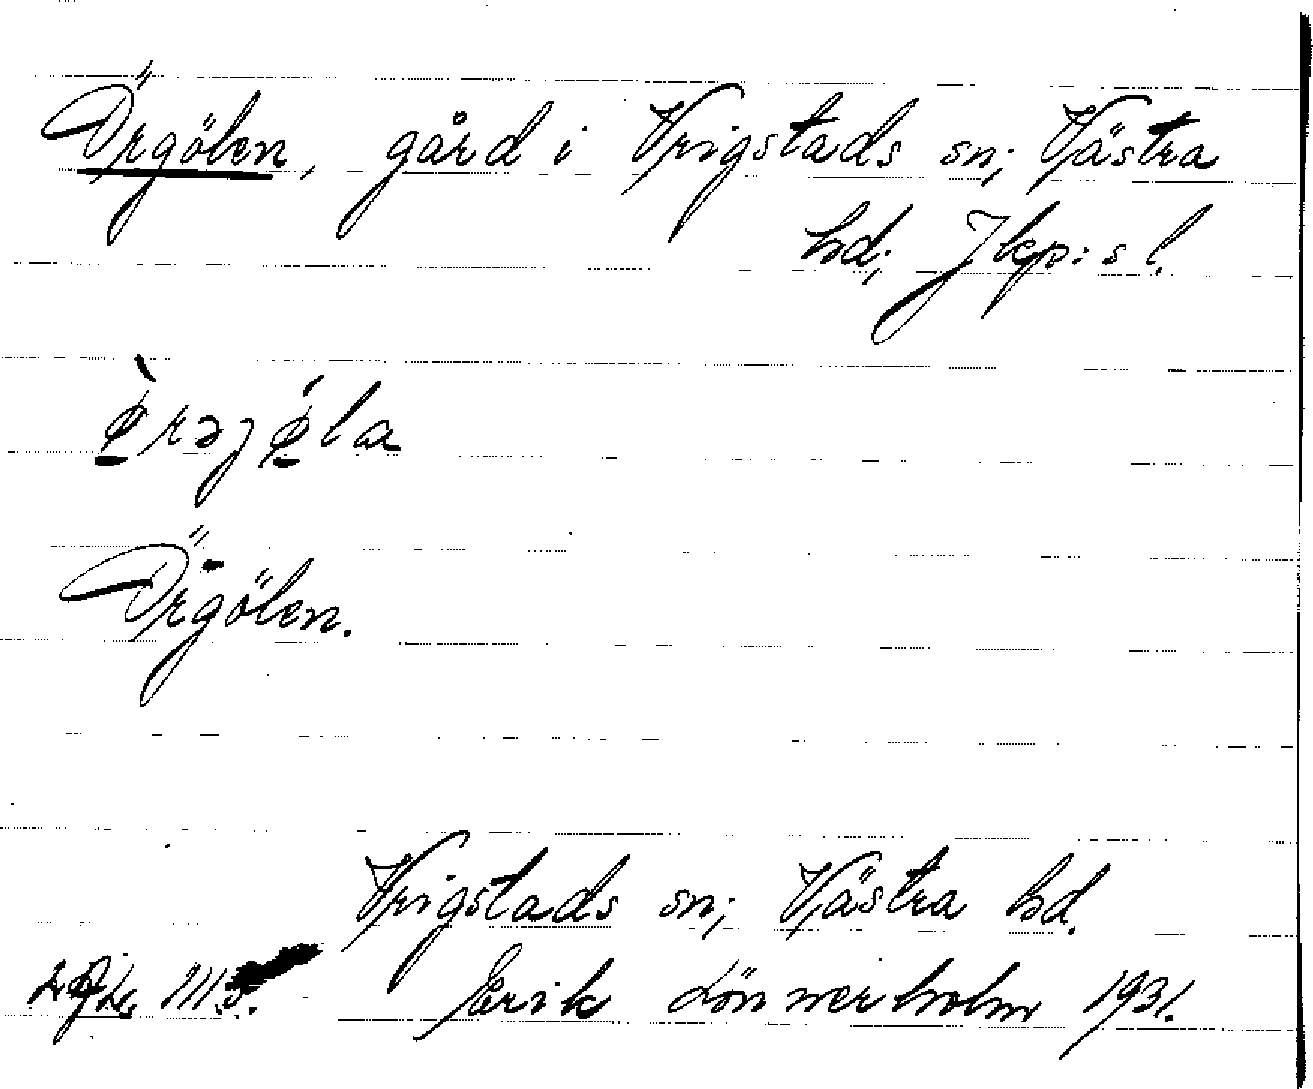 Örgölen, gård i Vrigstads sn; Västra
hd; Jkp:s l.
Örgölen.
Vrigstads sn; Västra hd.
Erik Lönnerholm 1931.